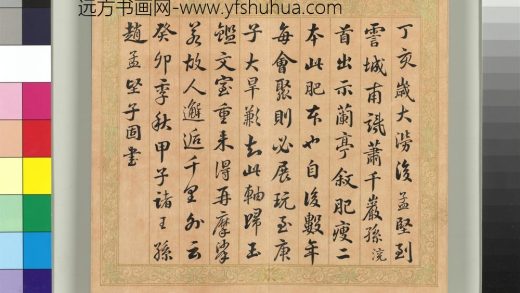 远方书画网-www.yfshuhua.com
丁亥歲大潦後孟堅到
霅城甫識蕭千巖孫浣
首出示蘭亭敘肥瘦二
本此肥本也自後數年
每會聚則必展玩至庚
子大旱歉去此軸歸玉
鑑文室重來得再摩挲
若故人邂逅千里外云
癸卯季秋甲子諸王孫
趙孟堅子固書